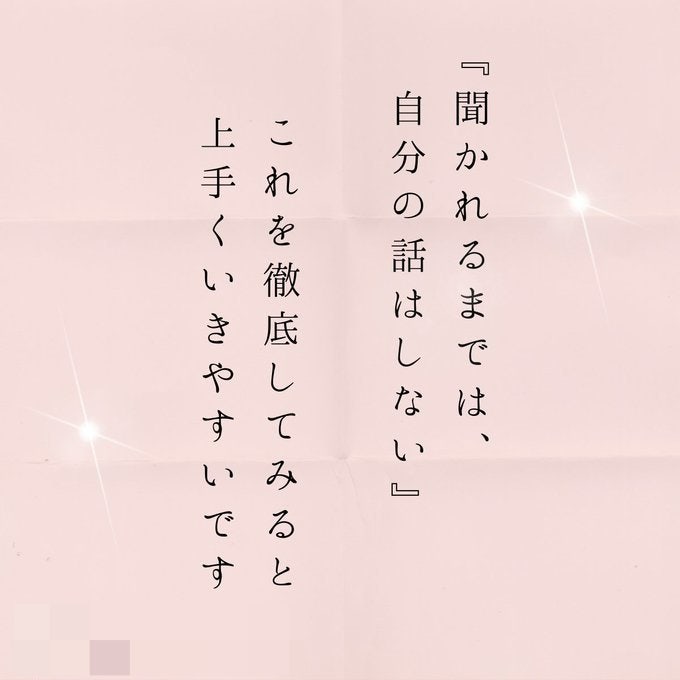 『聞かれるまでは、
自分の話はしない』
これを徹底してみると
上手くいきやすいです